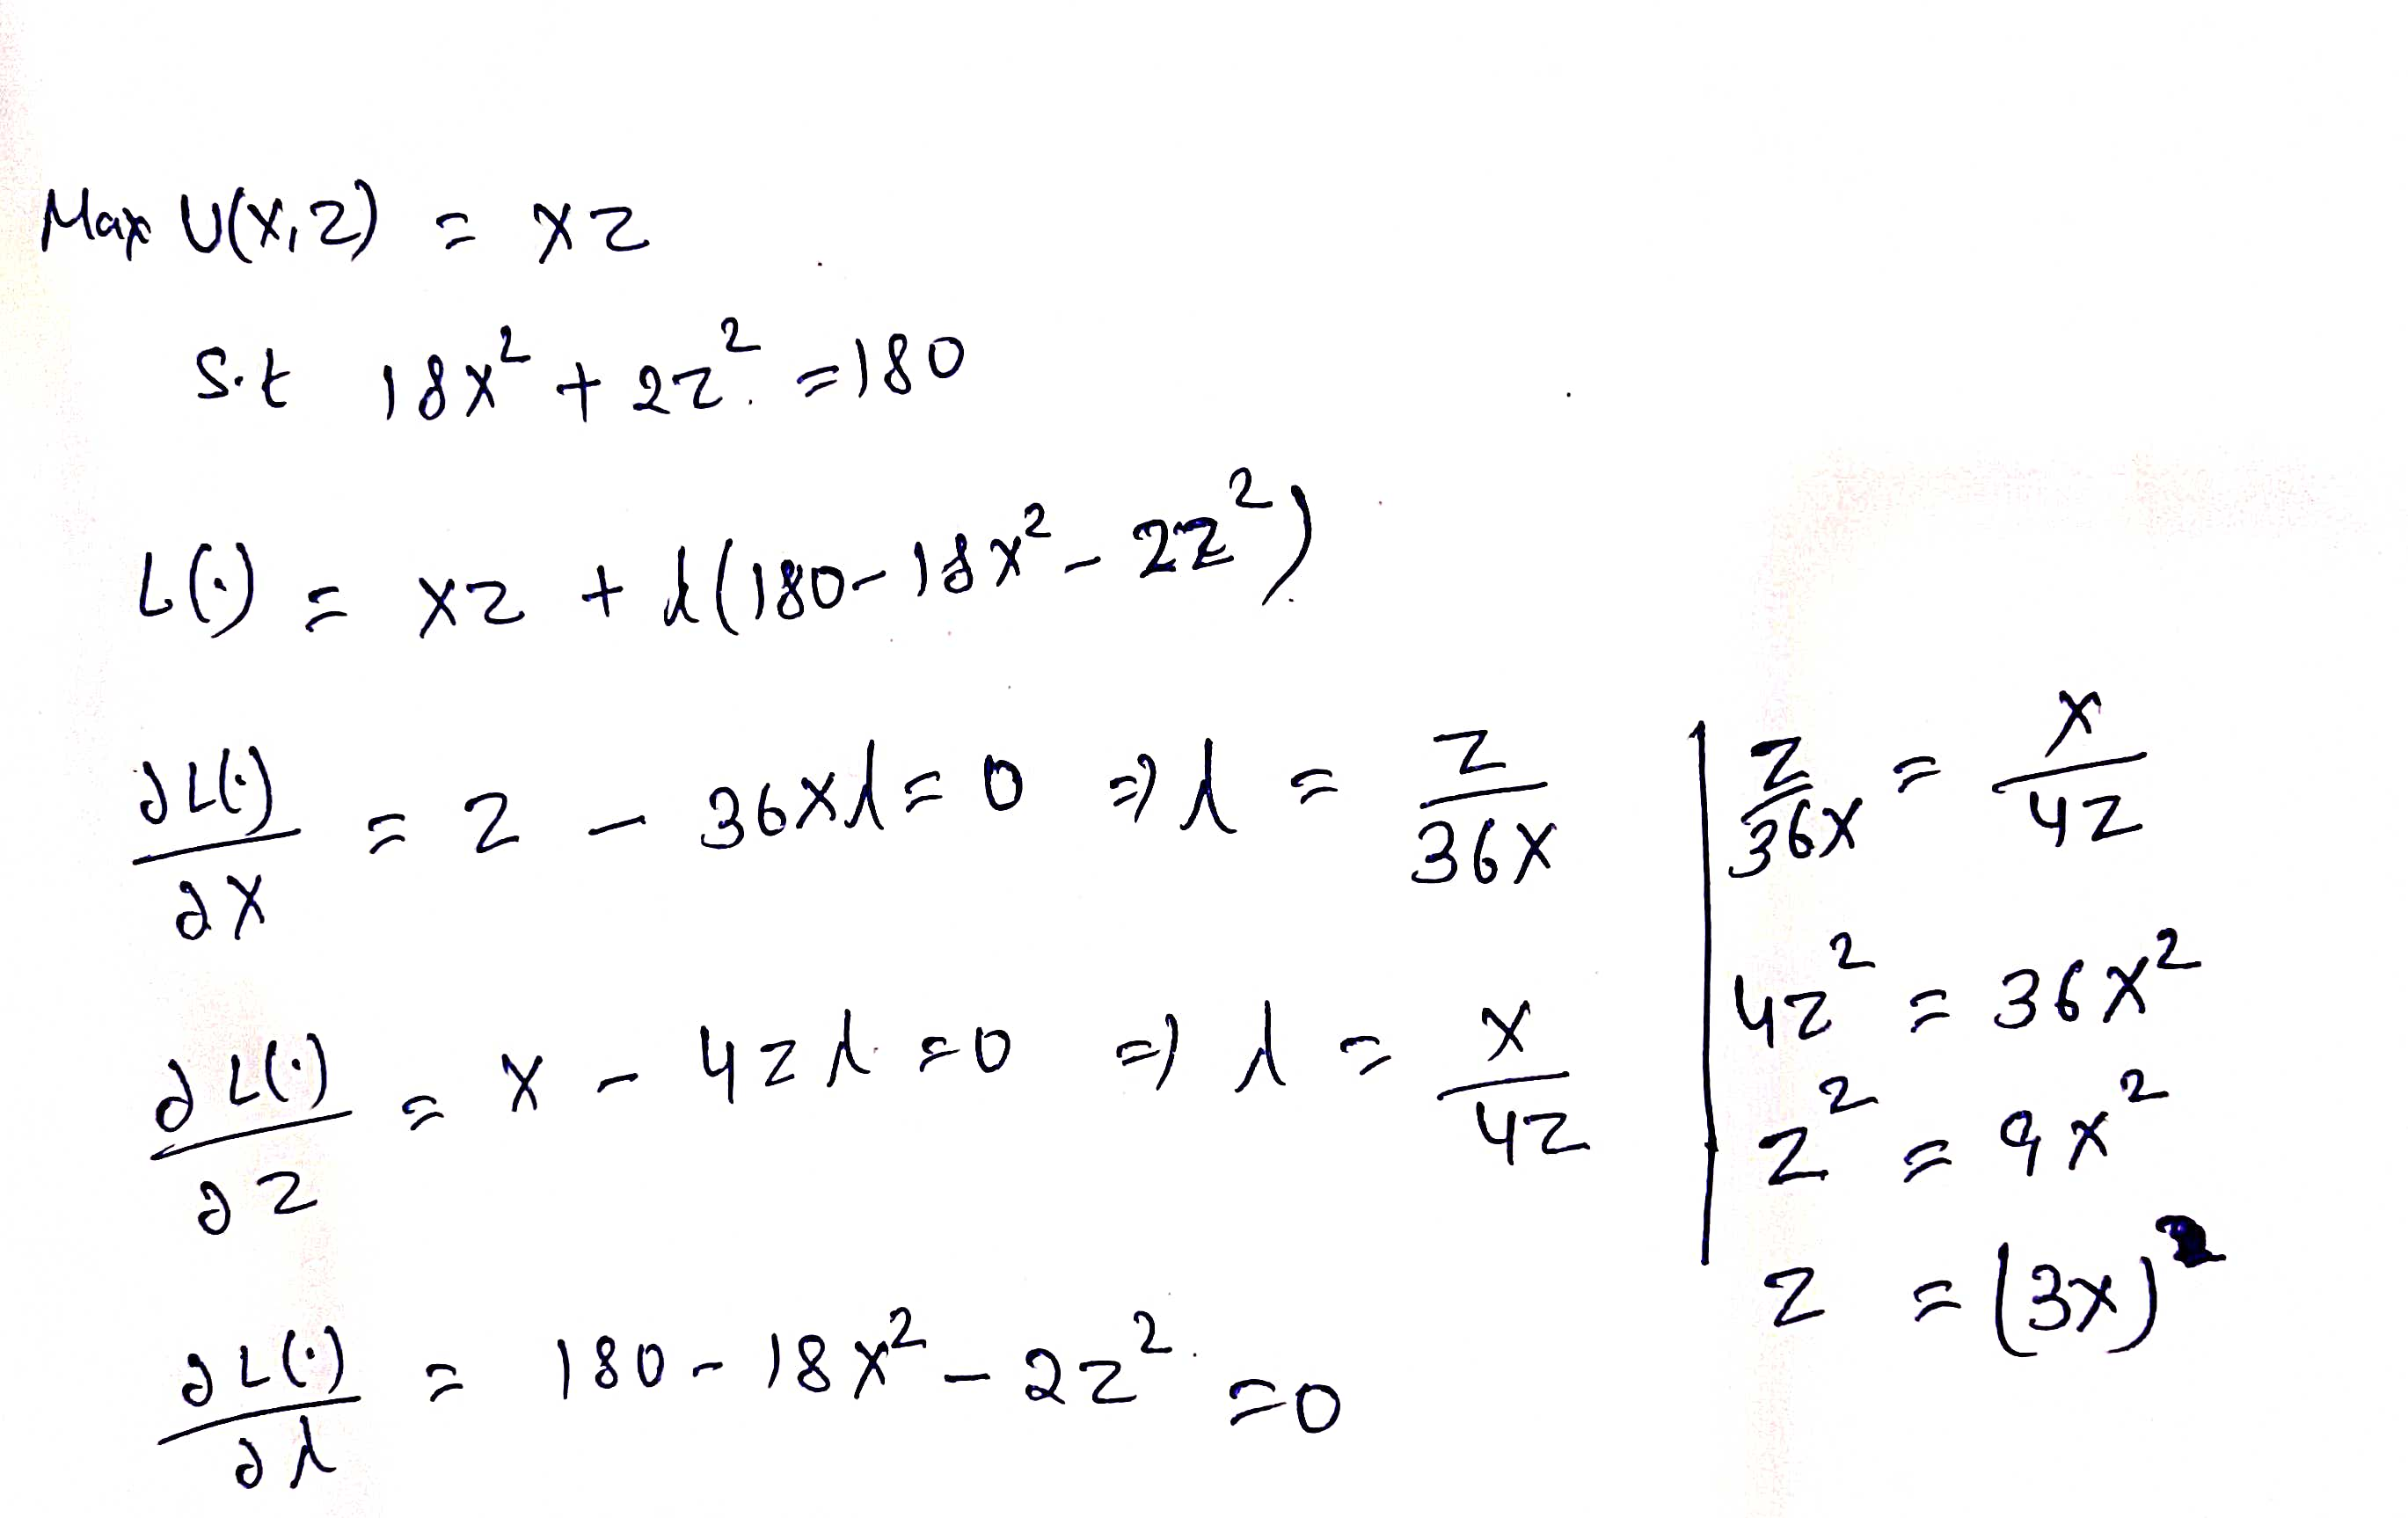 Max U(x,z) = xz
S.t 18x² + 2z² = 180
L(·) = xz + λ(180 - 18x² - 2z²)
∂L(·)/∂x = z - 36xλ = 0 ⇒ λ = z/36x
∂L(·)/∂z = x - 4zλ = 0 ⇒ λ = x/4z
∂L(·)/∂λ = 180 - 18x² - 2z² = 0
z/36x = x/4z
4z² = 36x²
z² = 9x²
z = (3x)